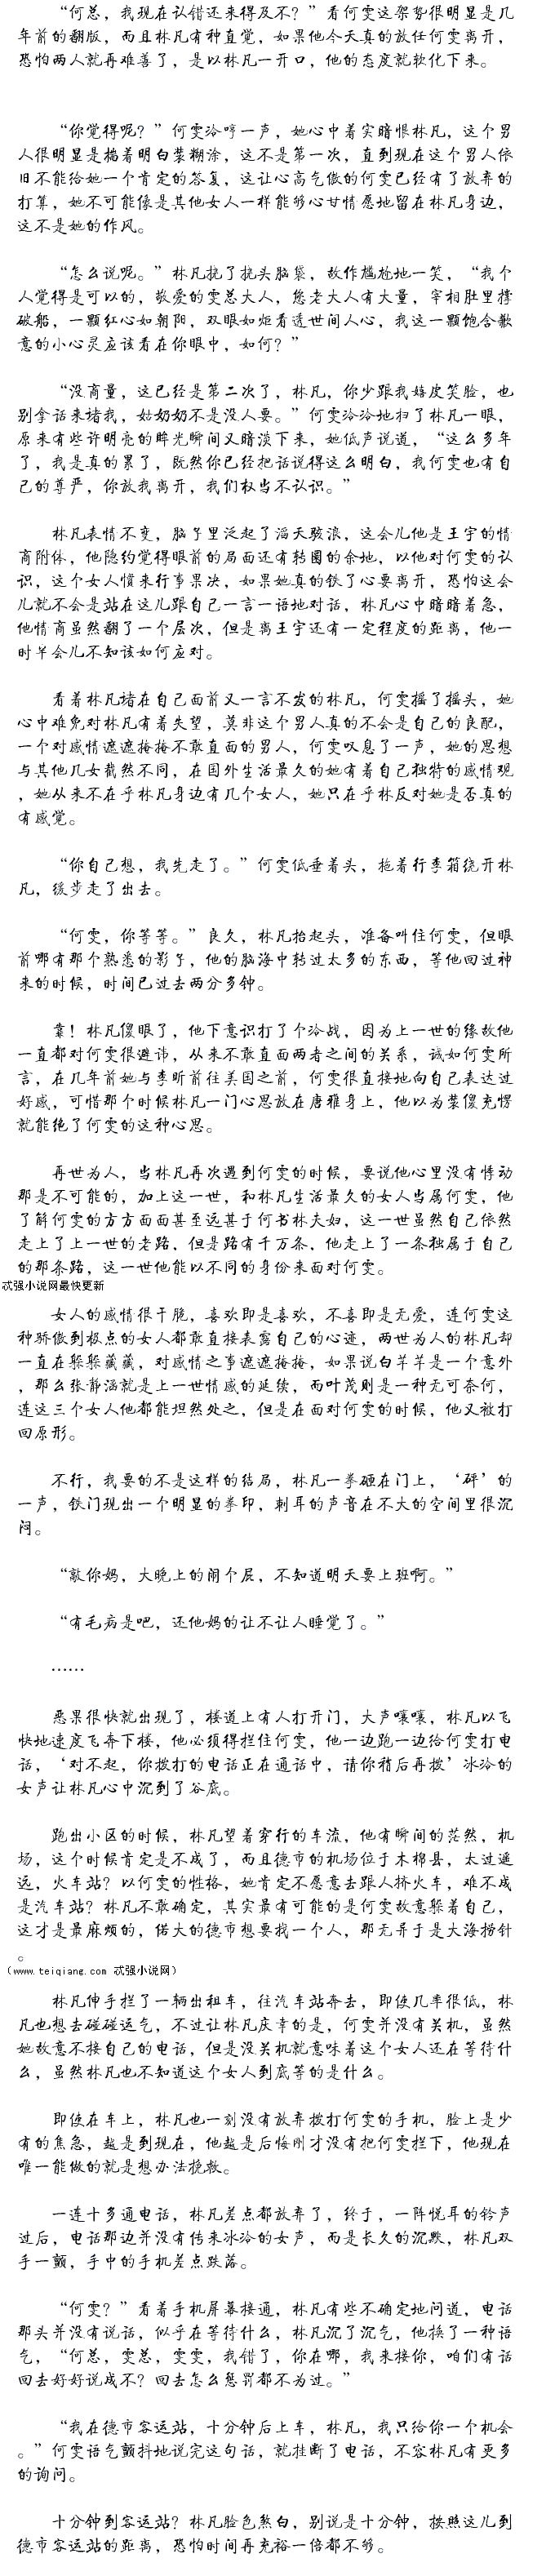 “何总，我现在认错还来得及不？”看何雯这架势很明显是几
年前的翻版，而且林凡有种直觉，如果他今天真的放任何雯离开，
恐怕两人就再难善了，是以林凡一开口，他的态度就软化下来。
“你觉得呢？”何雯冷哼一声，她心中着实暗恨林凡，这个男
人很明显是揣着明白装糊涂，这不是第一次，直到现在这个男人依
旧不能给她一个肯定的答复，这让心高气傲的何雯已经有了放弃的
打算，她不可能像是其他女人一样能够心甘情愿地留在林凡身边，
这不是她的作风。
“怎么说呢。”林凡挠了挠头脑袋，故作尴尬地一笑，“我个
人觉得是可以的，敬爱的雯总大人，您老大人有大量，宰相肚里撑
破船，一颗红心如朝阳，双眼如炬看透世间人心，我这一颗饱含歉
意的小心灵应该看在你眼中，如何？”
“没商量，这已经是第二次了，林凡，你少跟我嬉皮笑脸，也
别拿话来堵我，姑奶奶不是没人要。”何雯冷冷地扫了林凡一眼，
原来有些许明亮的眸光瞬间又暗淡下来，她低声说道，“这么多年
了，我是真的累了，既然你已经把话说得这么明白，我何雯也有自
己的尊严，你放我离开，我们权当不认识。”
林凡表情不变，脑子里泛起了滔天骇浪，这会儿他是王宇的情
商附体，他隐约觉得眼前的局面还有转圜的余地，以他对何雯的认
识，这个女人惯来行事果决，如果她真的铁了心要离开，恐怕这会
儿就不会是站在这儿跟自己一言一语地对话，林凡心中暗暗着急，
他情商虽然翻了一个层次，但是离王宇还有一定程度的距离，他一
时半会儿不知该如何应对。
看着林凡堵在自己面前又一言不发的林凡，何雯摇了摇头，她
心中难免对林凡有着失望，莫非这个男人真的不会是自己的良配，
一个对感情遮遮掩掩不敢直面的男人，何雯叹息了一声，她的思想
与其他几女截然不同，在国外生活最久的她有着自己独特的感情观
，她从来不在乎林凡身边有几个女人，她只在乎林反对她是否真的
有感觉。
“你自己想，我先走了。”何雯低垂着头，拖着行李箱绕开林
凡，缓步走了出去。
“何雯，你等等。”良久，林凡抬起头，准备叫住何雯，但眼
前哪有那个熟悉的影子，他的脑海中转过太多的东西，等他回过神
来的时候，时间已过去两分多钟。
靠！林凡傻眼了，他下意识打了个冷战，因为上一世的缘故他
一直都对何雯很避讳，从来不敢直面两者之间的关系，诚如何雯所
言，在几年前她与李昕前往美国之前，何雯很直接地向自己表达过
好感，可惜那个时候林凡一门心思放在唐雅身上，他以为装傻充愣
就能绝了何雯的这种心思。
再世为人，当林凡再次遇到何雯的时候，要说他心里没有悸动
那是不可能的，加上这一世，和林凡生活最久的女人当属何雯，他
了解何雯的方方面面甚至远甚于何书林夫妇，这一世虽然自己依然
走上了上一世的老路，但是路有千万条，他走上了一条独属于自己
的那条路，这一世他能以不同的身份来面对何雯。
忒强小说网最快更新
女人的感情很干脆，喜欢即是喜欢，不喜即是无爱，连何雯这
种骄傲到极点的女人都敢直接表露自己的心迹，两世为人的林凡却
一直在躲躲藏藏，对感情之事遮遮掩掩，如果说白羊羊是一个意外
，那么张静涵就是上一世情感的延续，而叶茂则是一种无可奈何，
连这三个女人他都能坦然处之，但是在面对何雯的时候，他又被打
回原形。
不行，我要的不是这样的结局，林凡一拳砸在门上，‘砰’的
一声，铁门现出一个明显的拳印，刺耳的声音在不大的空间里很沉
闷。
“敲你妈，大晚上的闹个屁，不知道明天要上班啊。”
“有毛病是吧，还他妈的让不让人睡觉了。”
……
恶果很快就出现了，楼道上有人打开门，大声嚷嚷，林凡以飞
快地速度飞奔下楼，他必须得拦住何雯，他一边跑一边给何雯打电
话，‘对不起，你拨打的电话正在通话中，请你稍后再拨’冰冷的
女声让林凡心中沉到了谷底。
跑出小区的时候，林凡望着穿行的车流，他有瞬间的茫然，机
场，这个时候肯定是不成了，而且德市的机场位于木棉县，太过遥
远，火车站？以何雯的性格，她肯定不愿意去跟人挤火车，难不成
是汽车站？林凡不敢确定，其实最有可能的是何雯故意躲着自己，
这才是最麻烦的，偌大的德市想要找一个人，那无异于是大海捞针
。
（www.teiqiang.com 忒强小说网）
林凡伸手拦了一辆出租车，往汽车站奔去，即使几率很低，林
凡也想去碰碰运气，不过让林凡庆幸的是，何雯并没有关机，虽然
她故意不接自己的电话，但是没关机就意味着这个女人还在等待什
么，虽然林凡也不知道这个女人到底等的是什么。
即使在车上，林凡也一刻没有放弃拨打何雯的手机，脸上是少
有的焦急，越是到现在，他越是后悔刚才没有把何雯拦下，他现在
唯一能做的就是想办法挽救。
一连十多通电话，林凡差点都放弃了，终于，一阵悦耳的铃声
过后，电话那边并没有传来冰冷的女声，而是长久的沉默，林凡双
手一颤，手中的手机差点跌落。
“何雯？”看着手机屏幕接通，林凡有些不确定地问道，电话
那头并没有说话，似乎在等待什么，林凡沉了沉气，他换了一种语
气，“何总，雯总，雯雯，我错了，你在哪，我来接你，咱们有话
回去好好说成不？回去怎么惩罚都不为过。”
“我在德市客运站，十分钟后上车，林凡，我只给你一个机会
。”何雯语气颤抖地说完这句话，就挂断了电话，不容林凡有更多
的询问。
十分钟到客运站？林凡脸色煞白，别说是十分钟，按照这儿到
德市客运站的距离，恐怕时间再充裕一倍都不够。